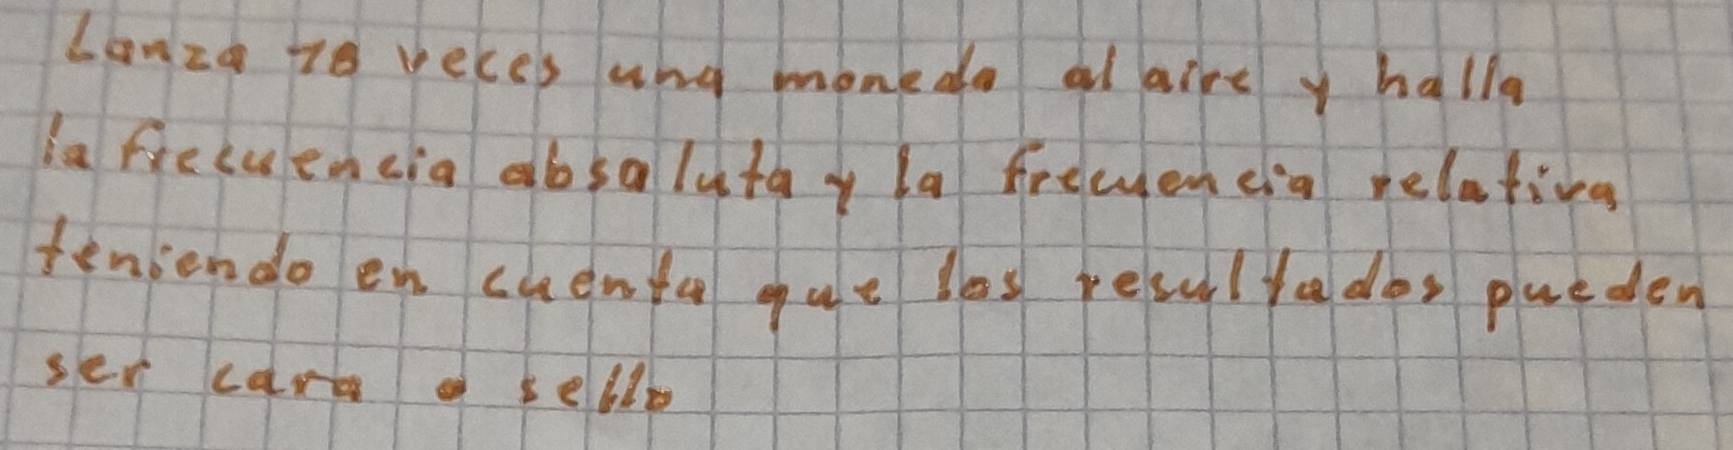 Lanza 10 veces una moneda al aire y halla
la frecuencia absaluta y la frecuencia relativa
teniendo en cuenta que los resultados pueden
ser cara o sello